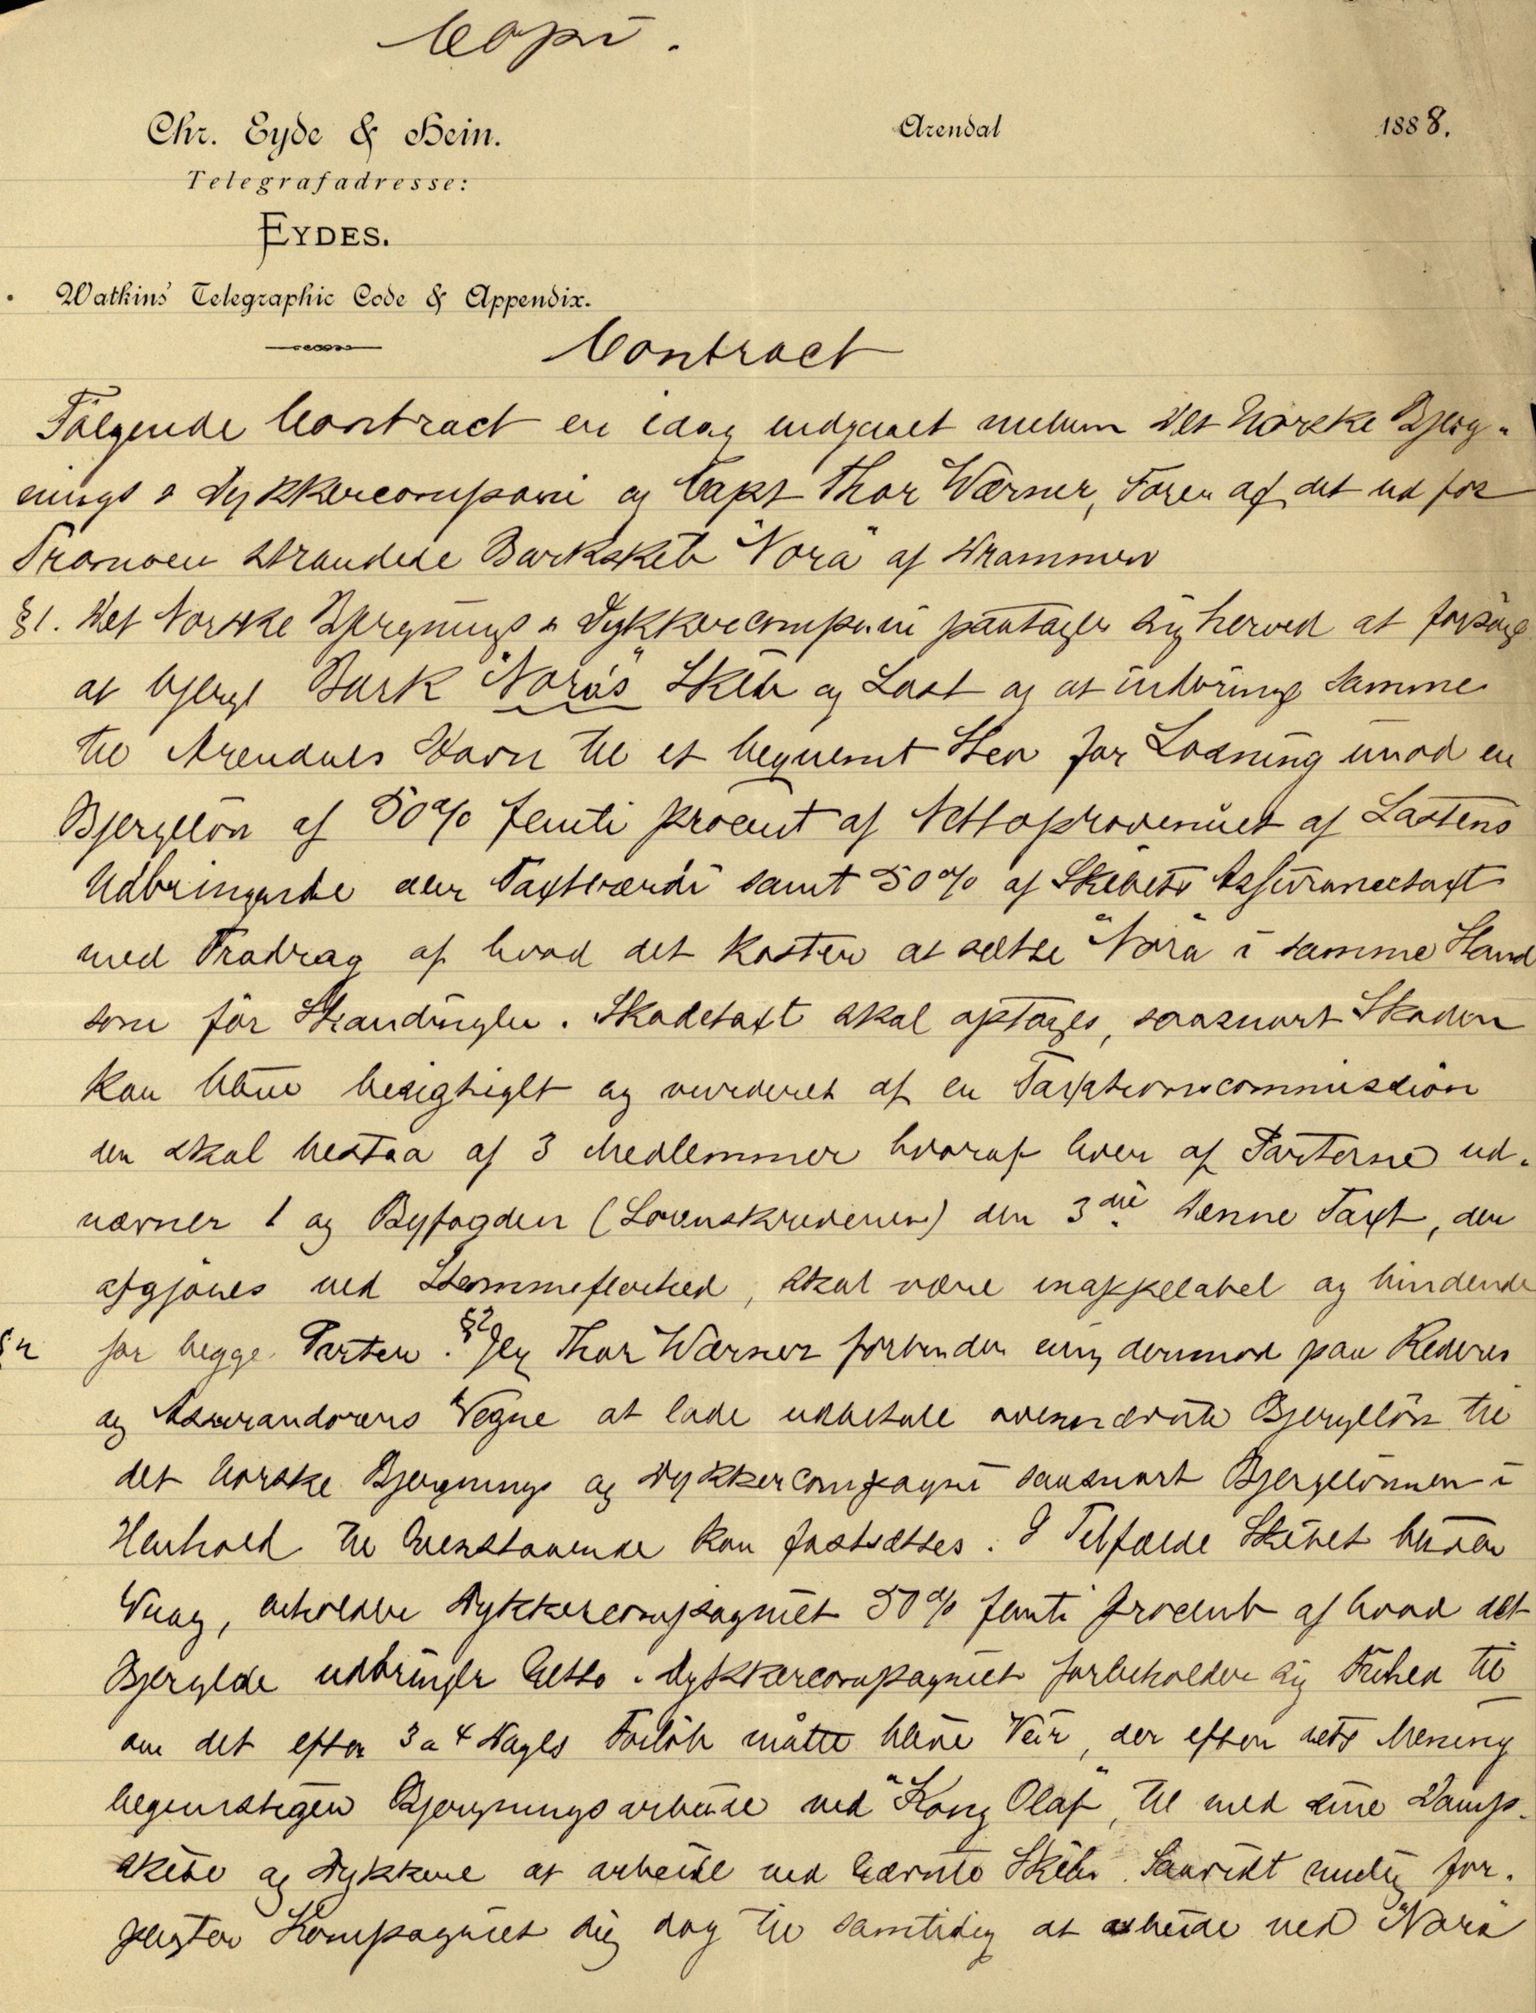 Copi.
Chr. Eyde & Hein.
Arendal
1888.
Telegrafadresse:
EYDES.
Watkins' Telegraphic Code & Appendix.
Contract
Følgende Contract er idag indgaaet mellem Det Norske Bjerg-
nings & Dykkercompani og Capt Thor Wærner, Fører af det ud for
Tromøen strandede Barkskib "Nora" af Drammen
§1. Det Norske Bjergnings & Dykkercompani paatager sig herved at forsøge
at bjerge Bark "Nora's" Skib og Last og at indbringe samme
til Arendals Havn til et beqvemt Sted for Losning imod en
Bjergeløn af 50% femti procent af Nettoprovenuet af Lastens
Udbringende eller Taxtværdi samt 50% af Skibets Assurancetaxt
med Fradrag af hvad det koster at sætte "Nora" i samme Stand
som før Strandingen. Skadetaxt skal optages, saasnart Skaden
kan blive besigtiget og vurderet af en Taxtionscommission
der skal bestaa af 3 Medlemmer hvoraf hver af Parterne ud-
nævner 1 og Byfogden (Sorenskriveren) den 3die. Denne Taxt, der
afgjøres ved Stemmeflerhed, skal være inappelabel og bindende
for begge Parter. §2 Jeg Thor Wærner forbinder mig derimod paa Rederes
og Assurandørers Vegne at lade udbetale ovennævnte Bjergeløn til
det norske Bjergnings og Dykkercompagni saasnart Bjergelønnen i
Henhold til Ovenstaaende kan fastsættes. I Tilfælde Skibet bliver
Vrag, erholder Dykkercompagniet 50% femti procent af hvad det
Bjergede udbringer Netto. Dykkercompagniet forbeholder sig Frihed til
om det efter 3 a 4 Dages Forløb måtte blive Veir, der efter dets Mening
begunstiger Bjergningsarbeide ved "Kong Olaf", til med sine Damp-
skibe og Dykkere at arbeide ved nævnte Skib. Saavidt mulig for-
pligter Kompagniet sig dog til samtidig at arbeide ved "Nora"